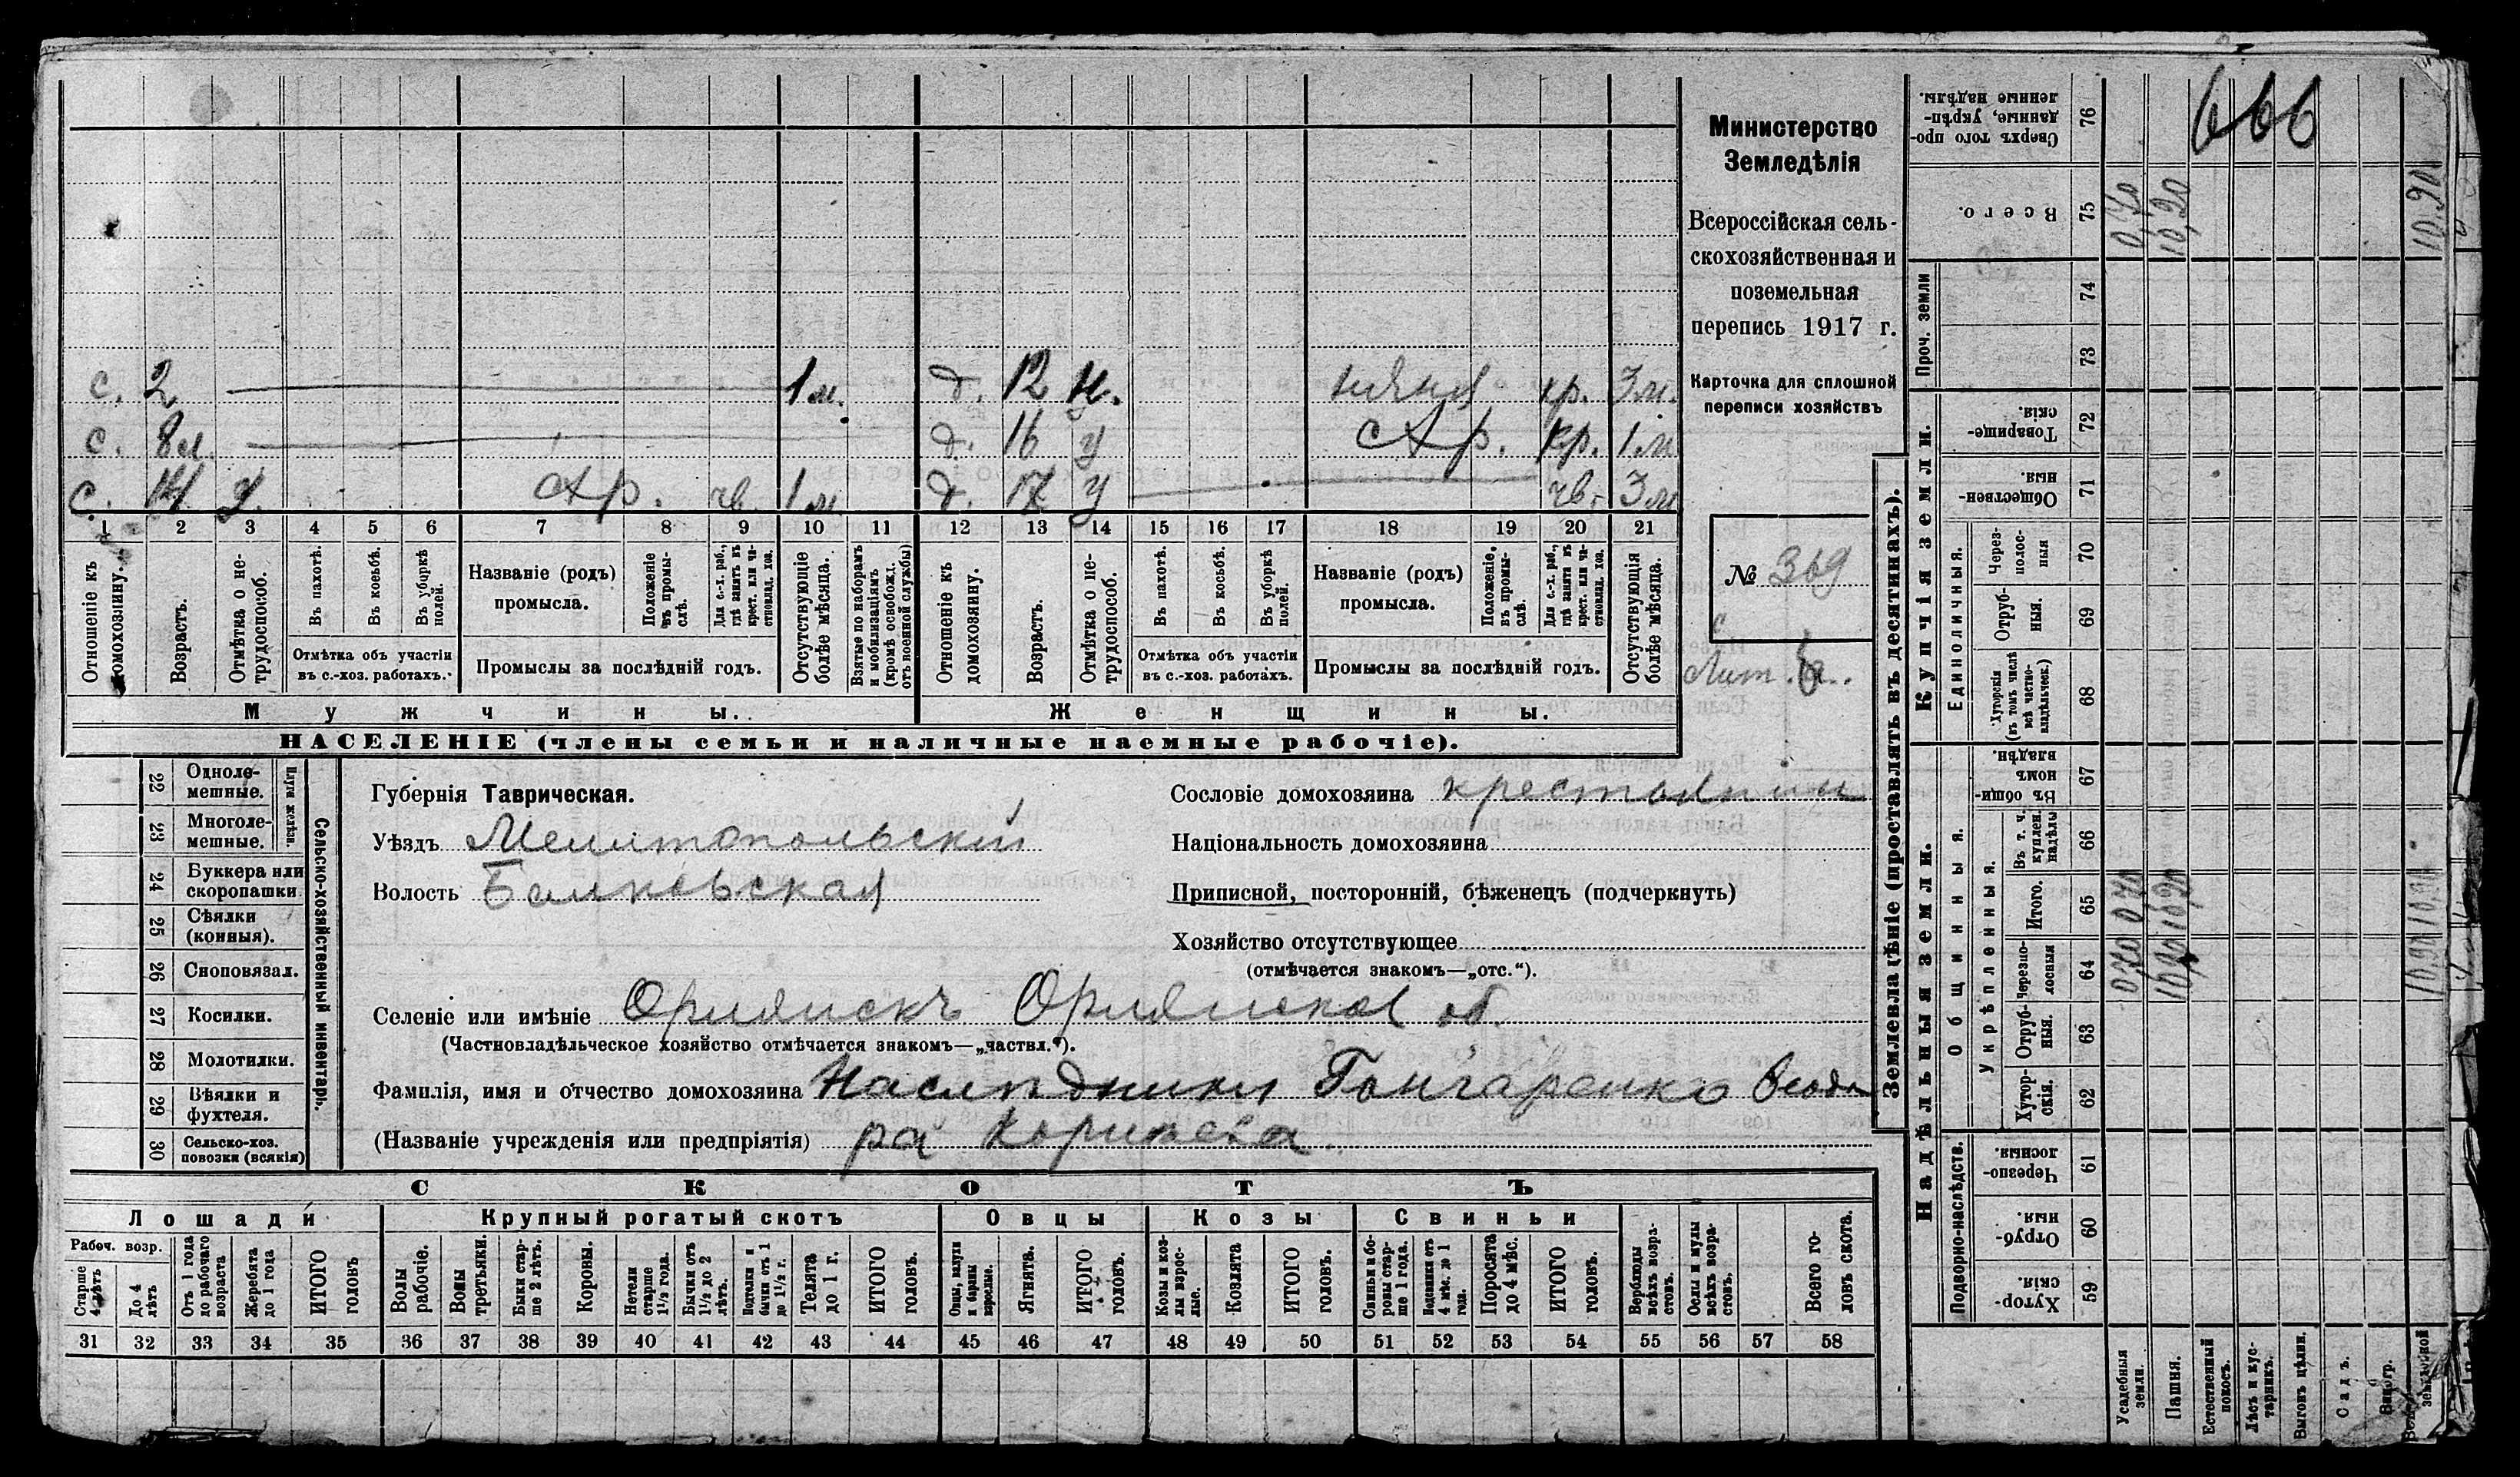 с. 2 1 м. д. 12 н. няня кр. 3 м.
с. 8 м. д. 16 у с х р. кр. 1 м
с. 14 у. с х р. чв. 1 м д. 17 у чв. 3 м
1 2 3 4 5 6 7 8 9 10 11 12 13 14 15 16 17 18 19 20 21
Отношеніе къ домохозяину.
Возрастъ.
Отмѣтка о нетрудоспособ.
Въ пахотѣ.
Въ косьбѣ.
Въ уборкѣ полей.
Отмѣтка объ участіи
въ с.-хоз. работахъ.
Названіе (родъ)
промысла.
Положеніе въ промыслѣ.
Для с.-х. раб., гдѣ занятъ въ крест. или частновлад. хоз.
Промыслы за послѣдній годъ.
Отсутствующіе болѣе мѣсяца.
Взятые по наборамъ и мобилизаціямъ (кромѣ освобожд. отъ военной службы)
Отношеніе къ домохозяину.
Возрастъ.
Отмѣтка о нетрудоспособ.
Въ пахотѣ.
Въ косьбѣ.
Въ уборкѣ полей.
Отмѣтка объ участіи
въ с.-хоз. работахъ.
Названіе (родъ)
промысла.
Положеніе въ промыслѣ.
Для с.-х. раб., гдѣ занята въ крест. или частновлад. хоз.
Промыслы за послѣдній годъ.
Отсутствующія болѣе мѣсяца.
Мужчины. Женщины.
НАСЕЛЕНІЕ (члены семьи и наличные наемные рабочіе).
Министерство
Земледѣлія
Всероссійская сель-
скохозяйственная и
поземельная
перепись 1917 г.
Карточка для сплошной
переписи хозяйствъ
№ 369
Лит.
Сельско-хозяйственный инвентарь.
Плуги желѣзн.
22 Однолемешные.
23 Многолемешные.
24 Буккера или скоропашки
25 Сѣялки (конныя).
26 Сноповязал.
27 Косилки.
28 Молотилки.
29 Вѣялки и фухтеля.
30 Сельско-хоз. повозки (всякія)
Губернія Таврическая.
Уѣздъ Мелитопольскій
Волость Балковская
Сословіе домохозяина крестьянин
Національность домохозяина
Приписной, посторонній, бѣженецъ (подчеркнуть)
Хозяйство отсутствующее
(отмѣчается знакомъ—„отс.“).
Селеніе или имѣніе Орлянскъ Орлянское об.
(Частновладѣльческое хозяйство отмѣчается знакомъ—„частвл.“).
Фамилія, имя и отчество домохозяина Наслѣдники Гонгаренко Ѳеодо
(Названіе учрежденія или предпріятія) ра Корнѣева
СКОТЪ
Лошади Крупный рогатый скотъ Овцы Козы Свиньи
Рабоч. возр.
Старше 4 лѣтъ
До 4 лѣтъ
Отъ 1 года до рабочаго возраста
Жеребята до 1 года
ИТОГО головъ
Волы рабочіе.
Волы третьяки.
Быки старше 2 лѣтъ.
Коровы.
Нетели старше 1½ года.
Бычки отъ 1½ до 2 лѣтъ.
Подтелки и бычки отъ 1 до 1½ г.
Телята до 1 г.
ИТОГО головъ.
Овцы, валухи и бараны взрослые.
Ягнята.
ИТОГО головъ.
Козы и козлы взрослые.
Козлята
ИТОГО головъ.
Свиньи и боровы старше 1 года.
Подсвинки отъ 4 мѣс. до 1 года.
Поросята до 4 мѣс.
ИТОГО головъ.
Верблюды всѣхъ возрастовъ.
Ослы и мулы всѣхъ возрастовъ.
Всего головъ скота.
31 32 33 34 35 36 37 38 39 40 41 42 43 44 45 46 47 48 49 50 51 52 53 54 55 56 57 58
Землевладѣніе (проставлять въ десятинахъ).
666
Сверхъ того проданные, укрѣпленные надѣлы. 76
Всего. 75 0,70 10,20 10.90
Проч. земли 74
73
Купчія земли.
Товарищескія. 72
Общественныя. 71
Единоличныя.
Черезполосныя 70
Отрубныя. 69
Хуторскія (въ томъ числѣ всѣ частновладѣльческ.) 68
Надѣльныя земли.
Общинныя.
Въ общинномъ владѣн. 67
Укрѣпленныя.
Въ т. ч. куплен. надѣлы 66
Итого. 65 0,70 10,20 10.90
Черезполосныя 64 0,70 10,20 10,90
Отрубныя. 63
Хуторскія. 62
Подворно-наслѣдств.
Черезполосныя. 61
Отрубныя. 60
Хуторскія. 59
Усадебныя земли.
Пашня.
Естественный покосъ.
Лѣсъ и кустарникъ.
Выгонъ цѣлин.
Садъ.
Виногр.